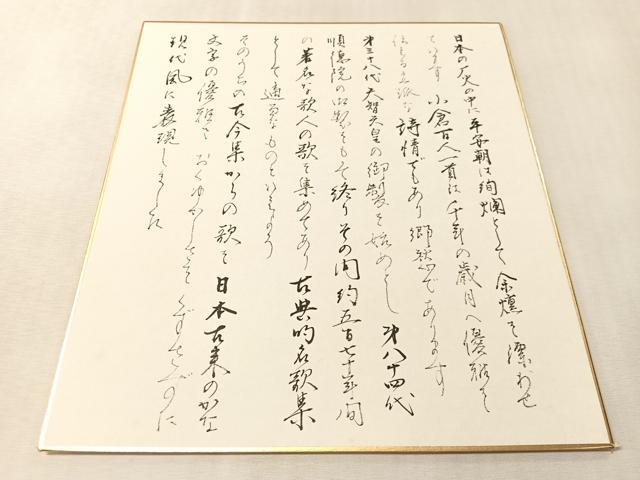 日本の歴史の中に平安朝は絢爛として余燻を漂わせ
ています 小倉百人一首は千年の歳月へ優雅さ
な詩情でもあり郷愁でもあります
第三十八代天智天皇の御製を始めとし 第八十四代
順徳院の御製をもって終りその間約五百七十年間
の著名な歌人の歌を集めてあり古典的名歌集
として適当なものといえましょう
そのうちの古今集からの歌を日本古来のかな
文字の優雅さ おくゆかしさをくずさずに
現代風に表現しました